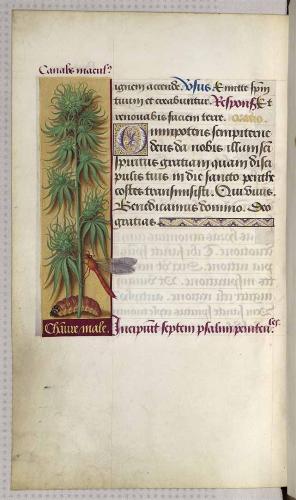 Canabs macus?
ignem accende. Vosus Emitte spiri
tuum et creabuntur. Respons Et
renovabis faciem terre. oratio.
Omnipotens sempiterne
deus da nobis illam sci
spiritus gratiam quam disci
pulis tuis in die sancto penthe
costes transmisisti. Qui vivis.
Benedicamus domino. Deo
gratias.
Chanve male.
Incipiunt septem psalmi peniten
les.